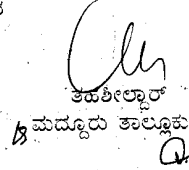 ತಹಶೀಲ್ದಾರ್
ಮದ್ದೂರು ತಾಲ್ಲೂಕು